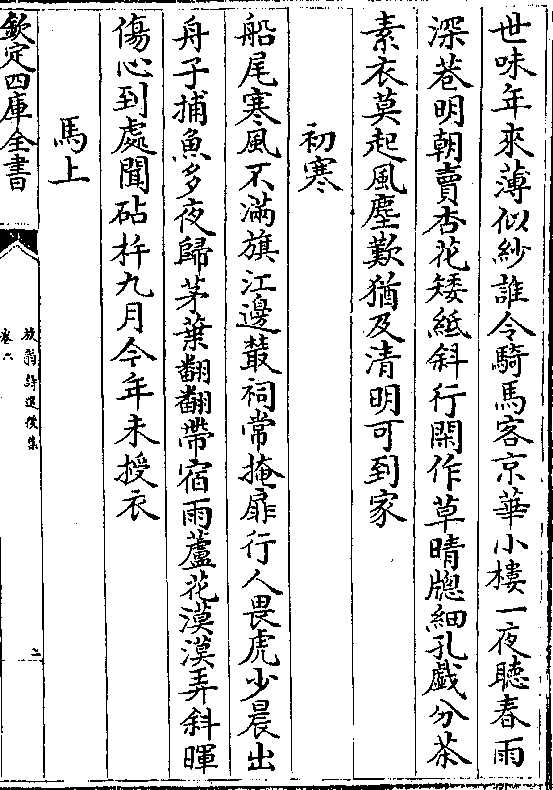 世味年來薄似紗誰令騎馬客京華小樓一夜聽春雨
深巷明朝賣杏花矮紙斜行閑作草晴牕細乳戲分茶
素衣莫起風塵歎猶及清明可到家
初寒
船尾寒風不滿旗江邊叢祠常掩扉行人畏虎少晨出
舟子捕魚多夜歸茅葉翻翻帶宿雨蘆花漠漠弄斜暉
傷心到處聞砧杵九月今年未授衣
馬上
欽定四庫全書
放翁詩選後集
卷六
二